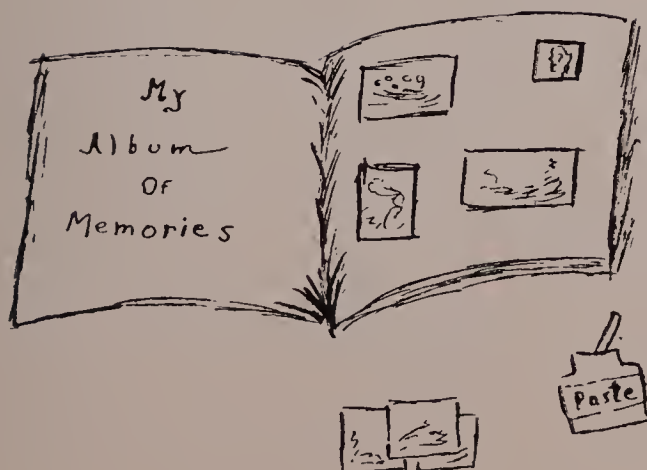 My
Album
Of
Memories
Paste